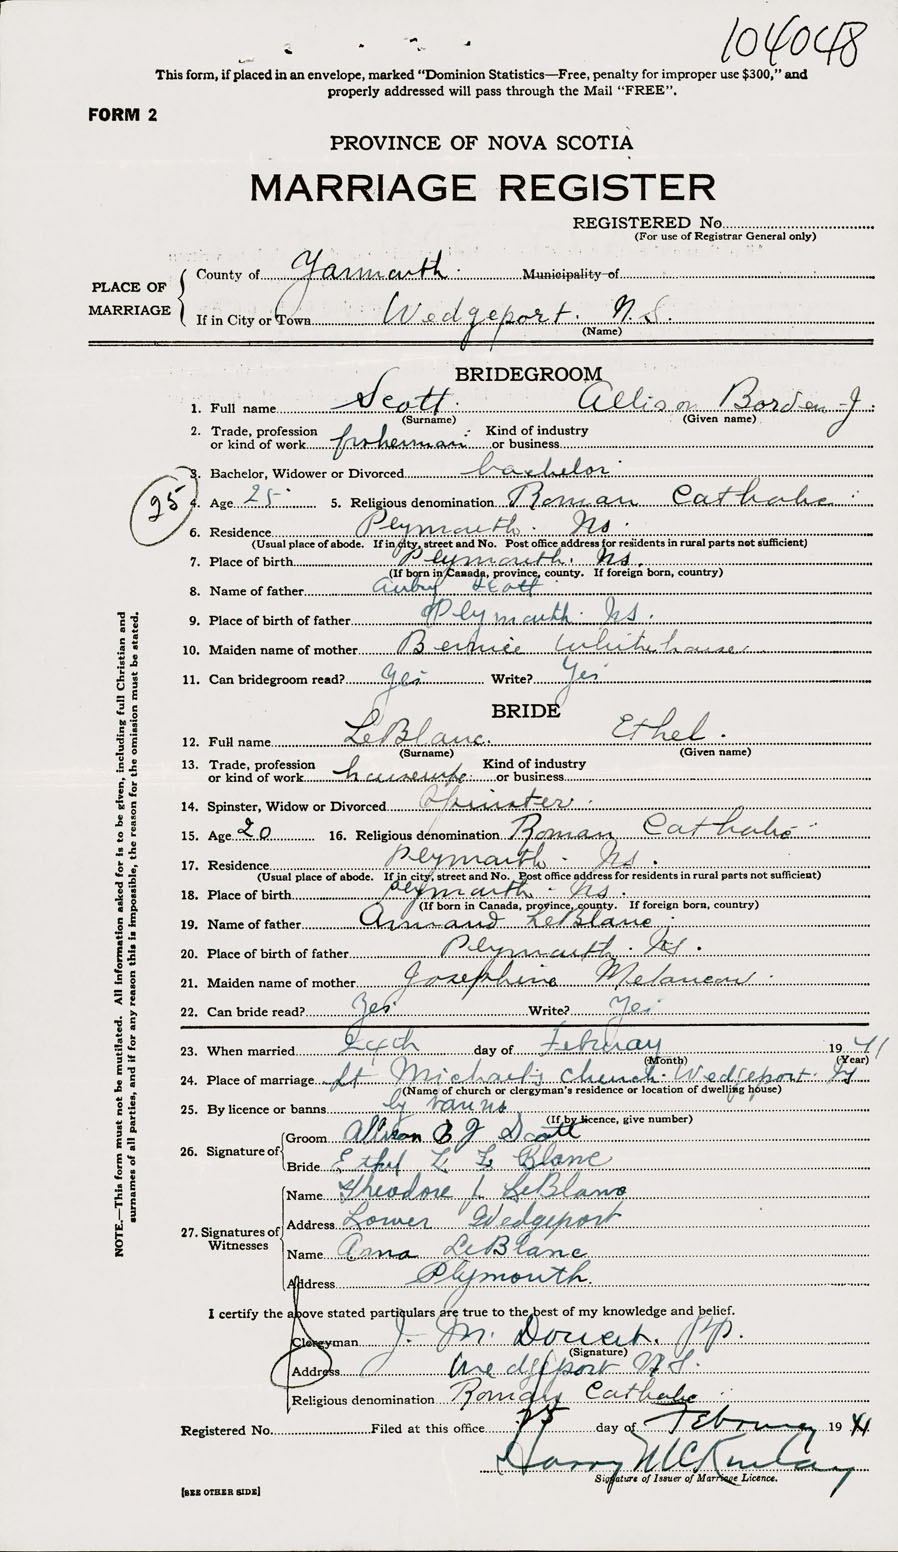 104048
This form, if placed in an envelope, marked “Dominion Statistics—Free, penalty for improper use $300,” and
properly addressed will pass through the Mail “FREE”.
FORM 2
PROVINCE OF NOVA SCOTIA
MARRIAGE REGISTER
REGISTERED No.
(For use of Registrar General only)
PLACE OF MARRIAGE
County of Yarmouth. Municipality of
If in City or Town Wedgeport. N.S.
(Name)
BRIDEGROOM
1. Full name Scott. Allison Borden J.
(Surname) (Given name)
2. Trade, profession or kind of work fisherman Kind of industry or business
3. Bachelor, Widower or Divorced bachelor
25
4. Age 25 5. Religious denomination Roman Catholic
6. Residence Plymouth. Ns.
(Usual place of abode. If in city, street and No. Post office address for residents in rural parts not sufficient)
7. Place of birth Plymouth. Ns.
(If born in Canada, province, county. If foreign born, country)
8. Name of father Scott
9. Place of birth of father Plymouth. Ns.
10. Maiden name of mother Bernice Whitehouse
11. Can bridegroom read? Yes Write? Yes
BRIDE
12. Full name LeBlanc. Ethel.
(Surname) (Given name)
13. Trade, profession or kind of work housewife Kind of industry or business
14. Spinster, Widow or Divorced Spinster
15. Age 20 16. Religious denomination Roman Catholic
17. Residence Plymouth. Ns.
(Usual place of abode. If in city, street and No. Post office address for residents in rural parts not sufficient)
18. Place of birth Plymouth. Ns.
(If born in Canada, province, county. If foreign born, country)
19. Name of father Armand LeBlanc
20. Place of birth of father Plymouth. Ns.
21. Maiden name of mother Josephine Melancon
22. Can bride read? Yes Write? Yes
23. When married 24th day of Feburay 1941
(Month) (Year)
24. Place of marriage St Michael's Church. Wedgeport. Ns
(Name of church or clergyman's residence or location of dwelling house)
25. By licence or banns by banns
(If by licence, give number)
26. Signature of Groom Allison B J Scott
Bride Ethel L. LeBlanc
27. Signatures of Witnesses
Name Theodore J. LeBlanc
Address Lower Wedgeport
Name Anna LeBlanc
Address Plymouth.
I certify the above stated particulars are true to the best of my knowledge and belief.
Clergyman J. M. Doucet. PP.
(Signature)
Address Wedgeport N.S.
Religious denomination Roman Catholic
Registered No. Filed at this office 25 day of February 1941
Harry McKinlay
Signature of Issuer of Marriage Licence.
[SEE OTHER SIDE]
NOTE.—This form must not be mutilated. All information asked for is to be given, including full Christian and
surnames of all parties, and if for any reason this is impossible, the reason for the omission must be stated.